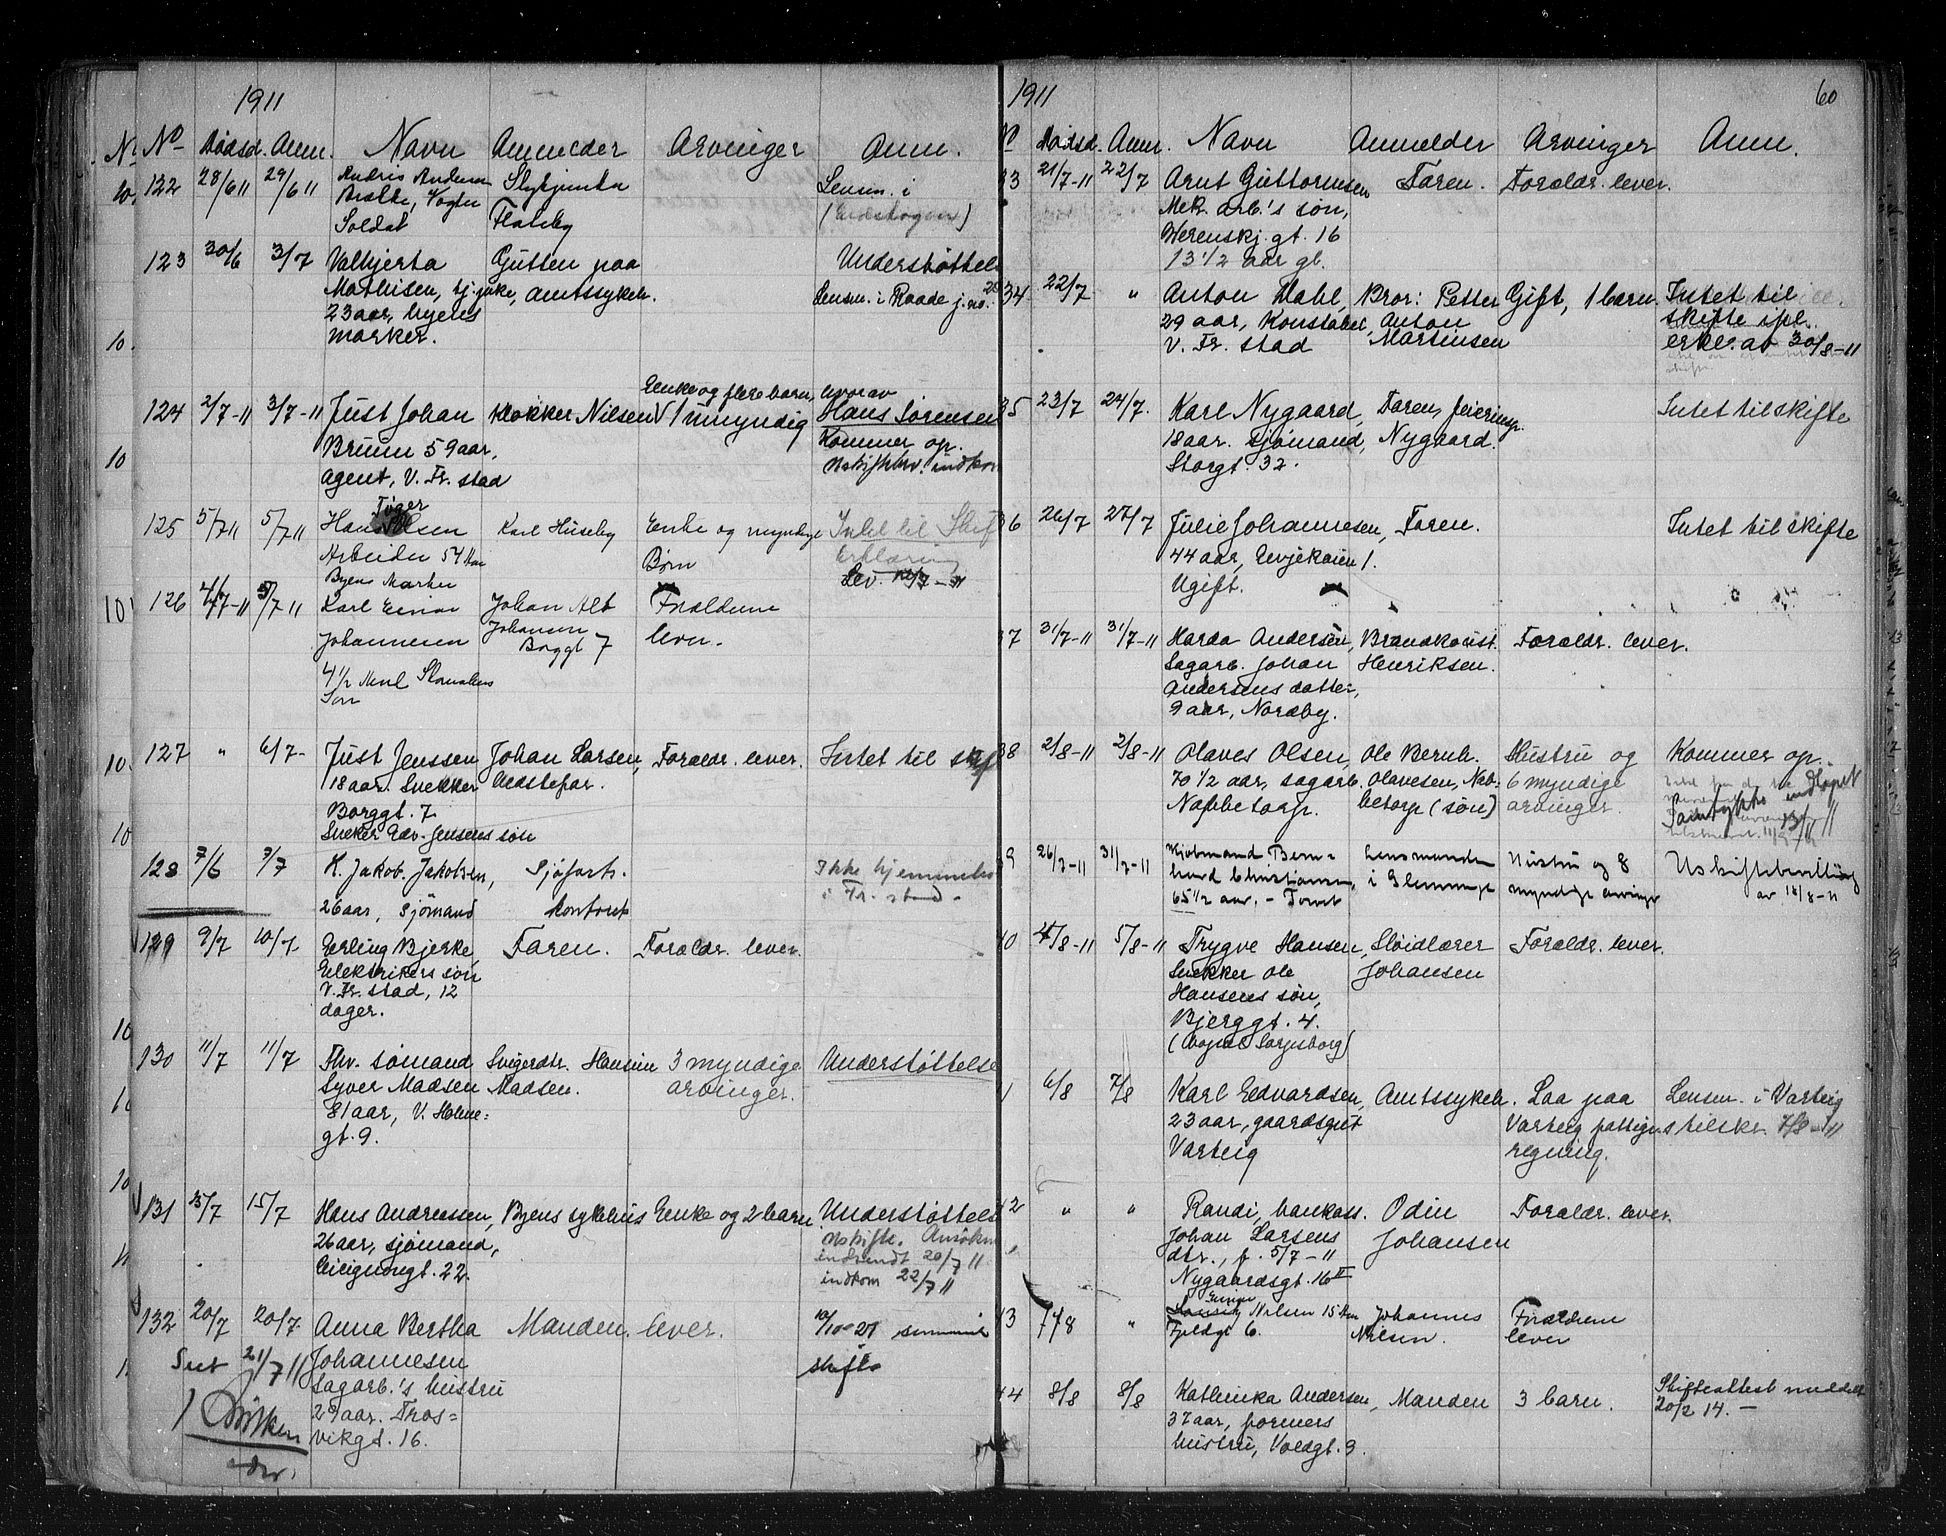 1911
No Dødsd. Anm. Navn Anmelder Arvinger Anm.
122 28/6 11 29/6 11 Andris Andersen
Brække, Vogter
Soldat
Flateby
Lensm. i
(Eidskogen)
123 30/6 3/7 Valhjerta Gutten paa Understøttels
Mathisen, tj.pike, amtssykeh. Lensm. i Raade j.no.
23 aar, byens
marker.
124 2/7-11 3/7-11 Just Johan Klokker Nilsen Enke og flere barn, hvorav
1 umyndig Hans Sørensen
Bruun 59 aar, Kommer op.
agent, V. Fr. stad Uskiftebev. indkom
125 5/7 11 5/7 11 Hans Tøger Olsen Karl Huseby Enke og myndige Intet til Skif
Arbeider 54 Aar Børn Erklæring
Byens Marker Lev. 12/7-11
126 4/7-11 5/7 11 Karl Einar Johan Alb Forældrene
Johannesen Johansen leve.
Borggt 7
4 1/2 Mnd Skomakers
Søn
127 " 6/7- Just Jenssen Johan Larsen, Forældr. lever. Intet til skif
18 aar. Snekker Bedstefar.
Borggt. 7
Snekker Edv. Jensens søn
128 7/6 7/7 K. Jakob. Jakobsen, Sjøfarts- Ikke hjemmehø
26 aar, sjømand kontoret i Fr. stad.-
129 9/7 10/7 Erling Bjerke, Faren. Forældr. lever.
Elektrikers søn
V. Fr. stad, 12
dager.
130 11/7 11/7 Fhv. sømand Svigerdtr. Hansine 3 myndige Understøttelse
Syver Madsen Madsen. arvinger.
81 aar, V. Holme=
gt. 9.
131 15/7 15/7 Hans Andreassen, Byens sykehus Enke og 2 barn Understøttels
26 aar, sjømand, Uskifte. Ansøkn
Cicignongt. 22. indsendt 20/7 11
indkom 22/7 11
132 20/7 20/7 Anna Bertha Manden. lever.
Johannesen skifte
Set 21/7 11
sagarb.'s hustru
29 aar. Tros=
vikgt. 16.
1911 60
No Dødsd. Anm. Navn Anmelder Arvinger Anm.
33 21/7-11 22/7 Arnt Guttormsen Faren. Forældr. lever.
Mek. arb.'s søn,
Werenskj. gt. 16
13 1/2 aar gl.
34 22/7 " Anton Dahl, Bror: Petter Gift, 1 barn. Intet til
29 aar, Konstabel, Anton skifte ifl.
V. Fr. stad Martinsen erkl. av 30/8-11
35 23/7 24/7. Karl Nygaard, Faren, feiersv. Intet til skifte
18 aar. sjømand, Nygaard.
Storgt. 32.
36 26/7 27/7 Julie Johannesen, Faren. Intet til skifte
44 aar, Evjekaien 1.
Ugift.
37 31/7-11 31/7-11 Harda Andersen, Brandkonst. Forældr. lever.
Sagarb. Johan Henriksen.
Andersens datter,
9 aar, Nordby.
38 2/8-11 2/8-11 Olaves Olsen, Ole Bernh. Hustru og Kommer op.
70 1/2 aar, sagarb. Olavesen, Nab- 6 myndige
Nabbetorp. betorp (søn) arvinger.
39 26/7-11 31/7-11 Hjelmand Bern= Lensmanden Hustru og 8 Uskiftebevilling
hard Christiansen, i Glemminge myndige arvinger av 18/8-11
65 1/2 aar. - Torvet
40 4/8-11 5/8-11 Trygve Hansen, Sløidlærer Forældr. lever.
Snekker Ole Johansen
Hansens søn,
Bjerggt. 4.
(bopæl Sarpsborg)
1 6/8 7/8 Karl Edvardsen, Amtssykeh. Laa paa Lensm. i Varteig
23 aar, gaardsgut Varteig fattigv.s tilskr. 7/8-11
Varteig regning.
42 " " Randi, bankass. Odin Forældr. lever.
Johan Larsens Johansen
dtr., f. 5/7-11
Nygaardsgt. 16 II
43 7/8 " Einar Nilsen 15 Aar Johannes Forældrene
Fjeldgt 6. Nilsen. lever
44 8/8 8/8 Kathinka Andersen, Manden 3 barn. Skifteattest meddelt
37 aar, formers 20/2 14.-
hustru, Voldgt. 9.